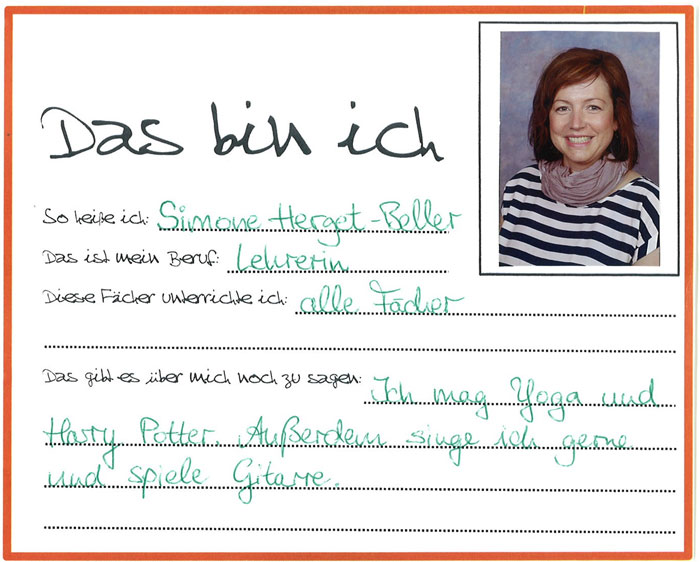 Das bin ich
So heiße ich: Simone Herget-Beller
Das ist mein Beruf: Lehrerin
Diese Fächer unterrichte ich: alle Fächer
Das gibt es über mich noch zu sagen: Ich mag Yoga und
Harry Potter. Außerdem singe ich gerne
und spiele Gitarre.